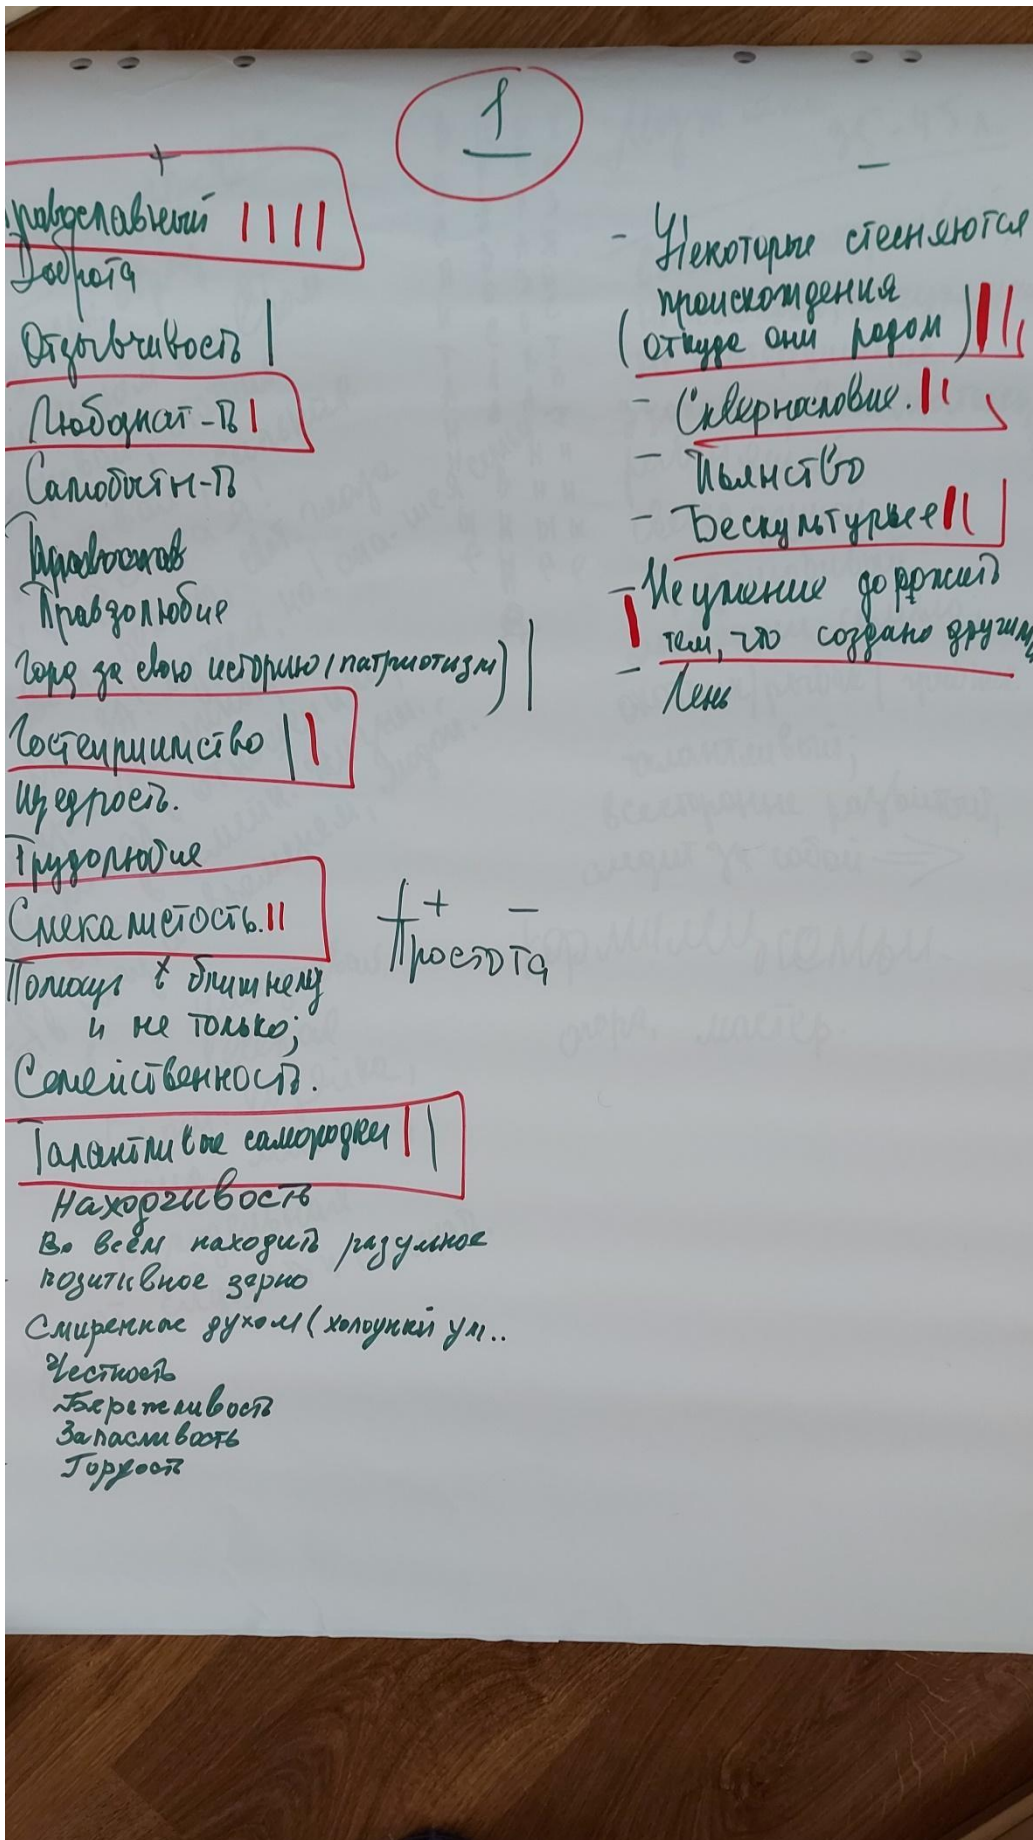 1
+
равославный ||||
Доброта
Отзывчивость |
Любознат-ть |
Самобытн-ть
Правдолюбие
Горд за свою историю (патриотизм) |
Гостеприимство ||
Щедрость.
Трудолюбие
Смекалистость. ||
Помощь к ближнему
и не только;
Семейственность.
Талантливые самородки ||
Находчивость
Во всем находить разумное
позитивное зерно
Смиренные духом (холодный ум..
Честность
Бережливость
Запасливость
Гордость
+ −
Простота
−
- Некоторые стесняются
происхождения
(откуда они родом) |||
- Сквернословие. ||
- Пьянство
- Бескультурье ||
- Неумение дорожить
| тем, что создано другими
- Лень